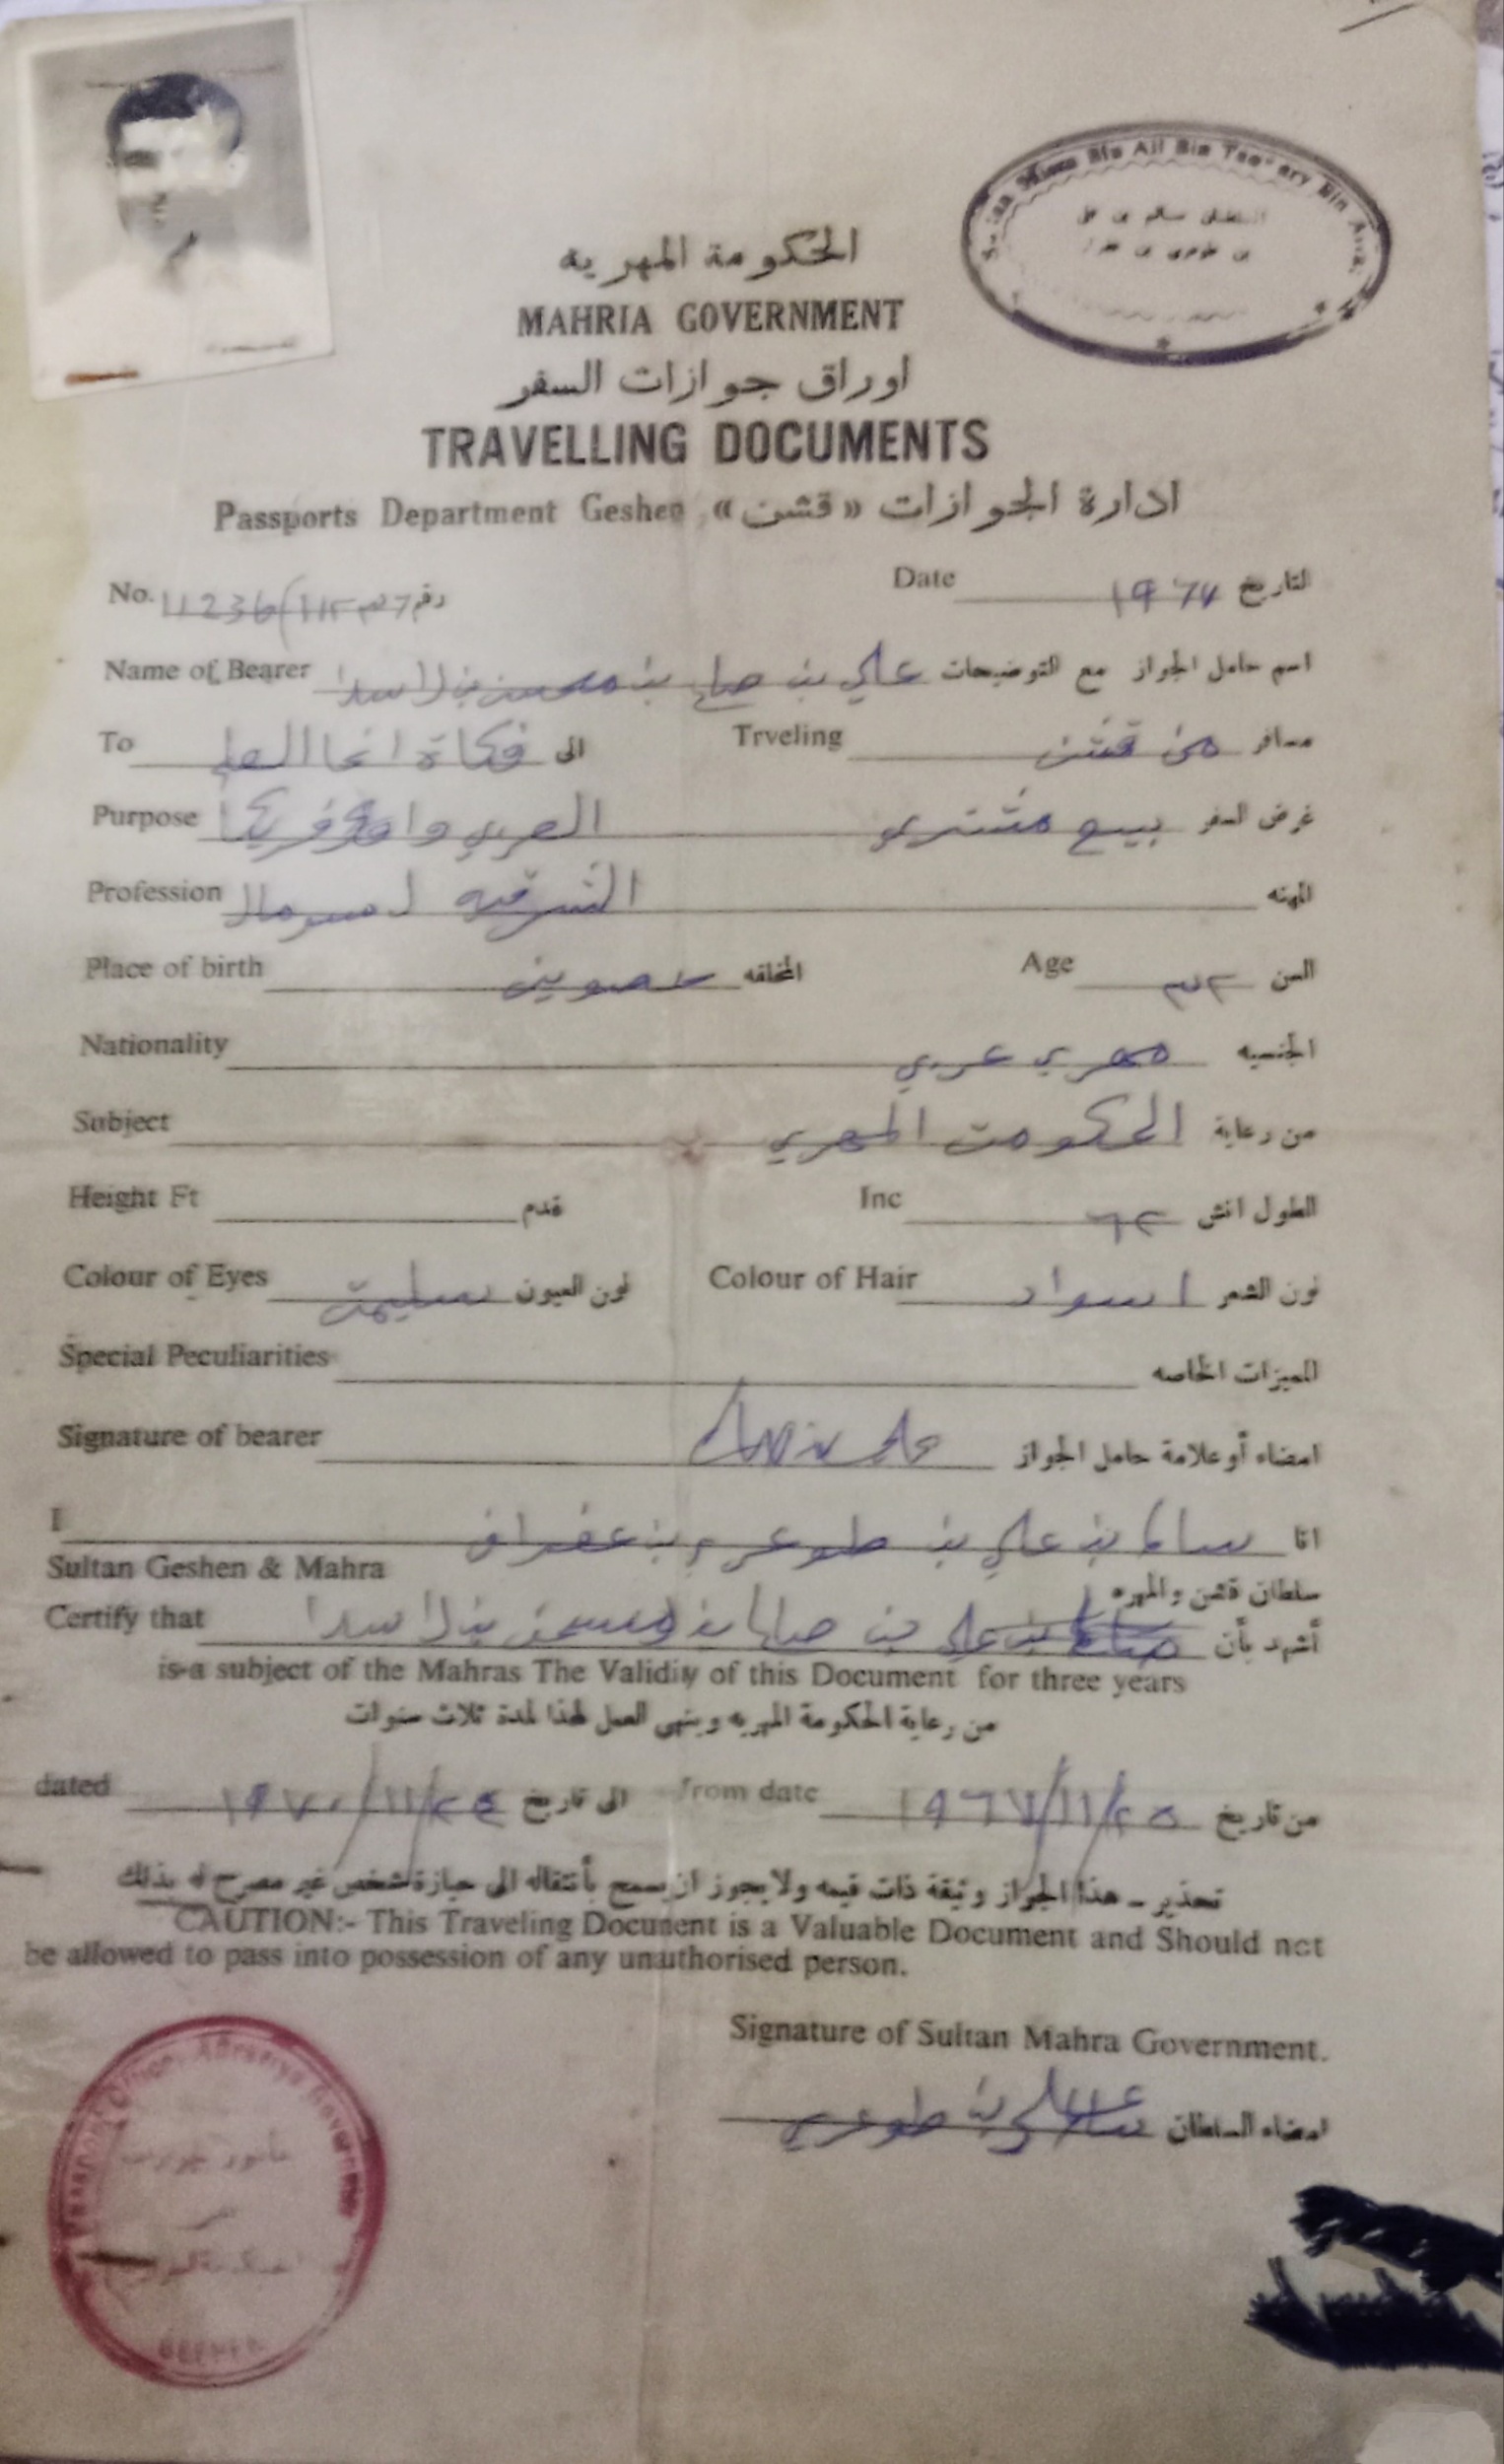 Bin Ali Bin
السلطان سالم بن علي
بن
الحكومة المهريه
MAHRIA GOVERNMENT
اوراق جوازات السفر
TRAVELLING DOCUMENTS
Passports Department Geshen «قشن» ادارة الجوازات
No. 11236 رقم Date ١٩٦٧ التاريخ
Name of Bearer اسم حامل الجواز مع التوضيحات علي بن صالح بن محسن بن
To الى Trveling مسافر من قشن
Purpose العربي و غرض السفر بيع مشتري
Profession الشرقيه المهنه
Place of birth الخلقه Age السن
Nationality الجنسيه مهري عربي
Subject من رعاية الحكومت المهري
Height Ft قدم Inc الطول انش ٦٢
Colour of Eyes لون العيون سليمة Colour of Hair لون الشعر اسواد
Special Peculiarities المميزات الخاصه
Signature of bearer امضاء أو علامة حامل الجواز علي بن
I انا سالم بن علي بن طوعري بن عفرار
Sultan Geshen & Mahra سلطان قشن والمهره
Certify that أشهد بأن علي بن صالح بن محسن بن
is a subject of the Mahras The Validiy of this Document for three years
من رعاية الحكومة المهريه وينهى العمل لهذا لمدة ثلاث سنوات
dated الى تاريخ from date ١٩٦٧/١١/٢٥ من تاريخ
تحذير ـ هذا الجواز وثيقة ذات قيمه ولا يجوز ان يسمح بأنتقاله الى حيازة شخص غير مصرح له بذلك
CAUTION:- This Traveling Document is a Valuable Document and Should not
be allowed to pass into possession of any unauthorised person.
Signature of Sultan Mahra Government.
امضاء السلطان سالم علي بن طوعري
Passport